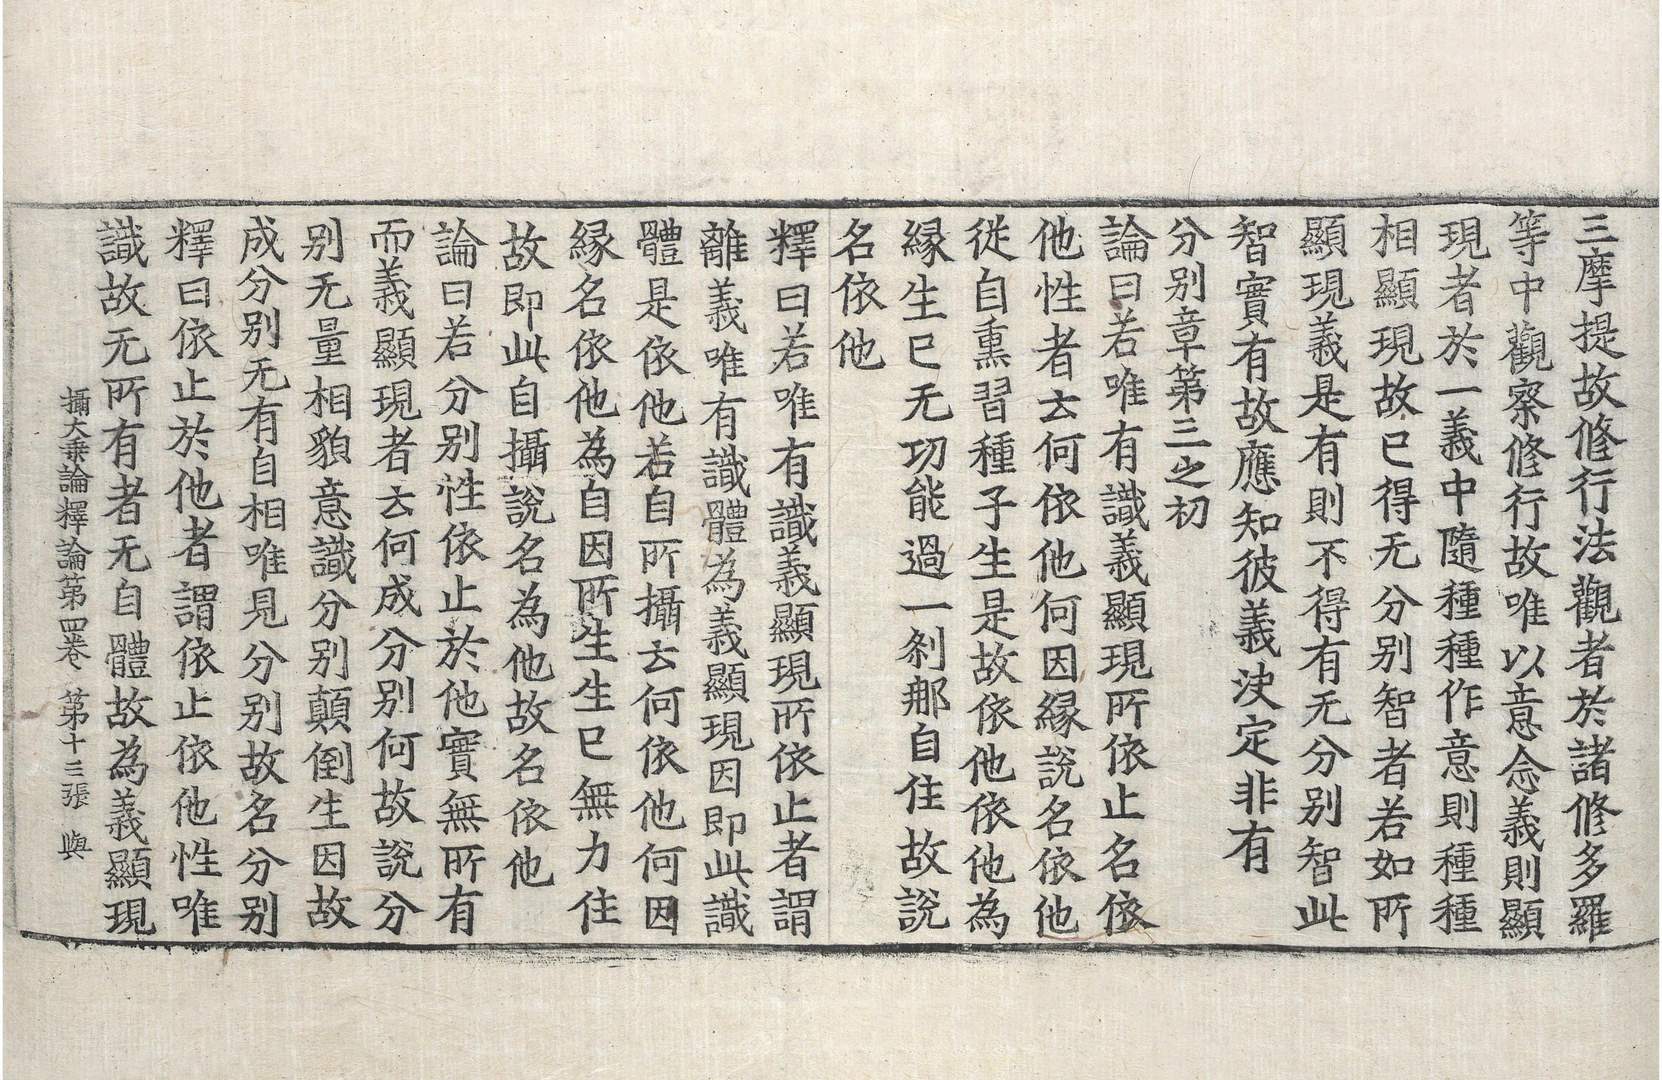 三摩提故修行法觀者於諸修多羅
等中觀察修行故唯以意念義則顯
現者於一義中隨種種作意則種種
相顯現故已得无分别智者若如所
顯現義是有則不得有无分别智此
智實有故應知彼義决定非有
分别章第三之初
論曰若唯有識義顯現所依止名依
他性者云何依他何因縁說名依他
從自熏習種子生是故依他依他為
縁生已无功能過一刹那自住故説
名依他
釋曰若唯有識義顯現所依止者謂
離義唯有識體為義顯現因即此識
體是依他若自所攝云何依他何因
縁名依他為自因所生生已無力住
故即此自攝說名為他故名依他
論曰若分别性依止於他實無所有
而義顯現者云何成分别何故說分
别无量相貌意識分别顛倒生因故
成分别无有自相唯見分别故名分别
釋曰依止於他者謂依止依他性唯
識故无所有者无自體故為義顯現
攝大乗論釋論第四卷 第十三張 與